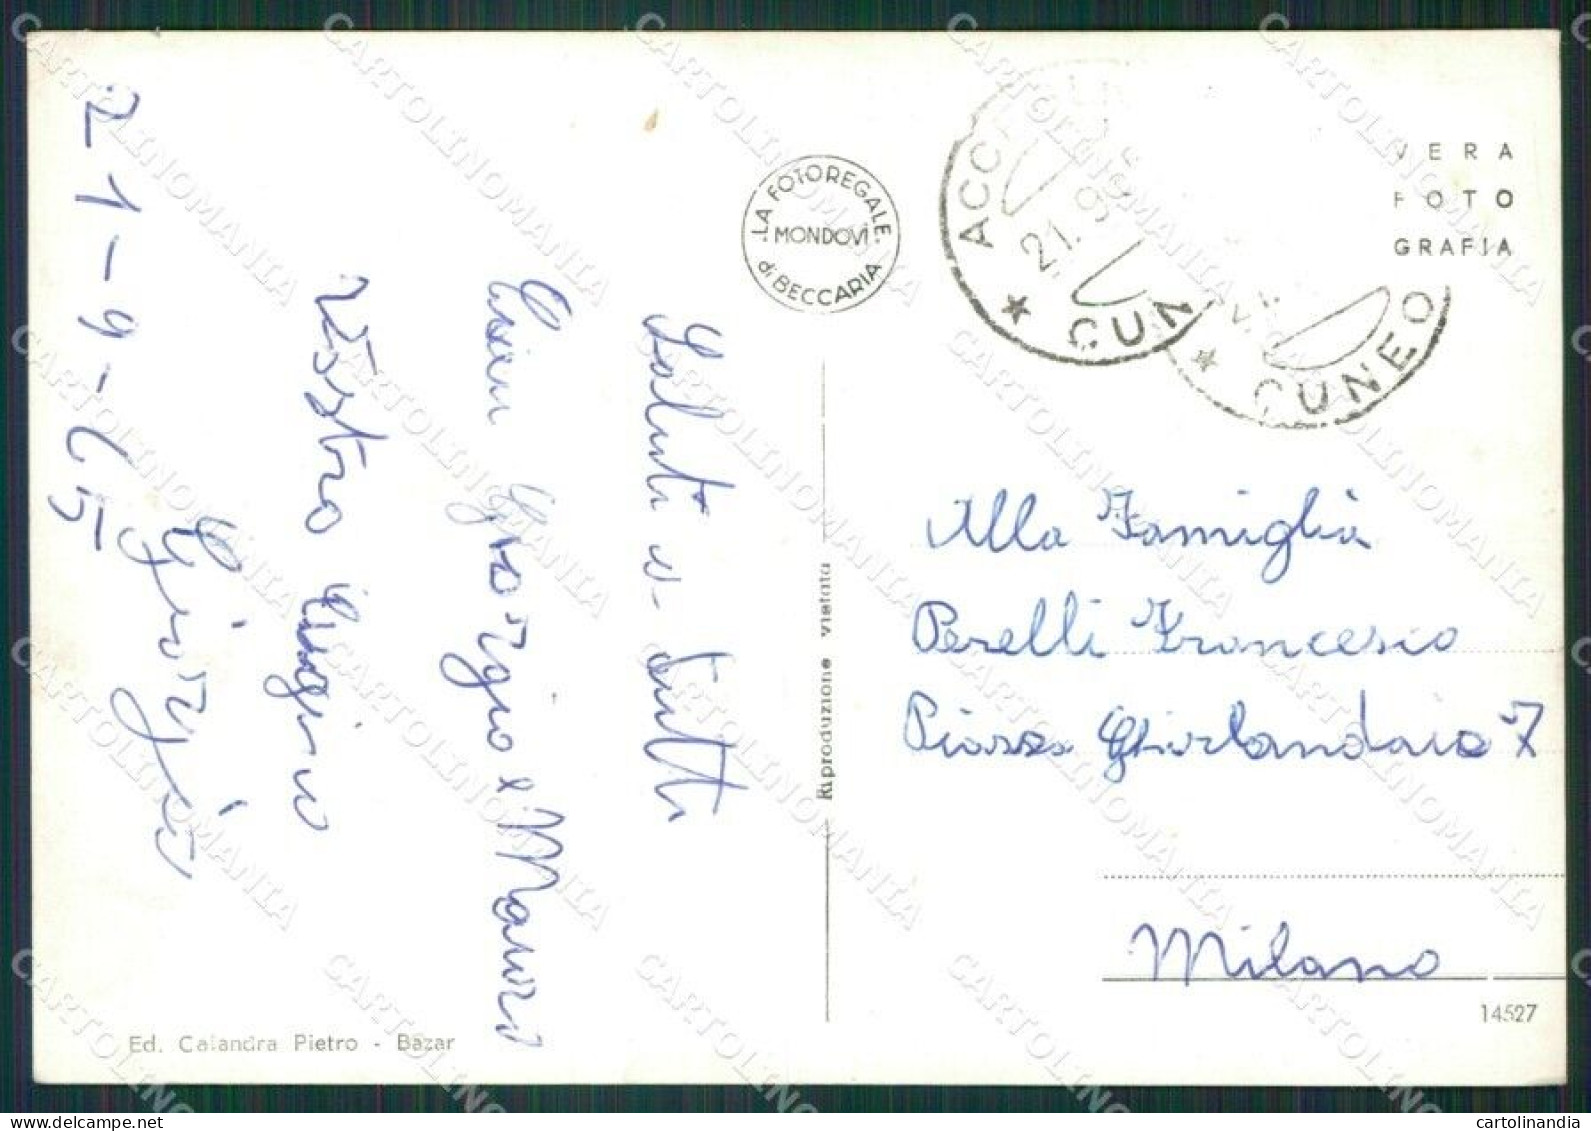 21-9-65
Saluti a tutti
Giorgio e Mauro
Vostro Cugino
Giorgio
LA FOTOREGALE
MONDOVÌ
di BECCARIA
21.9
CUN
CUNEO
VERA
FOTO
GRAFIA
Riproduzione vietata
Alla Famiglia
Perelli Francesco
Piazza Ghirlandaio 7
Milano
14527
Ed. Calandra Pietro - Bazar
CARTOLINOMANIA
cartolinandia